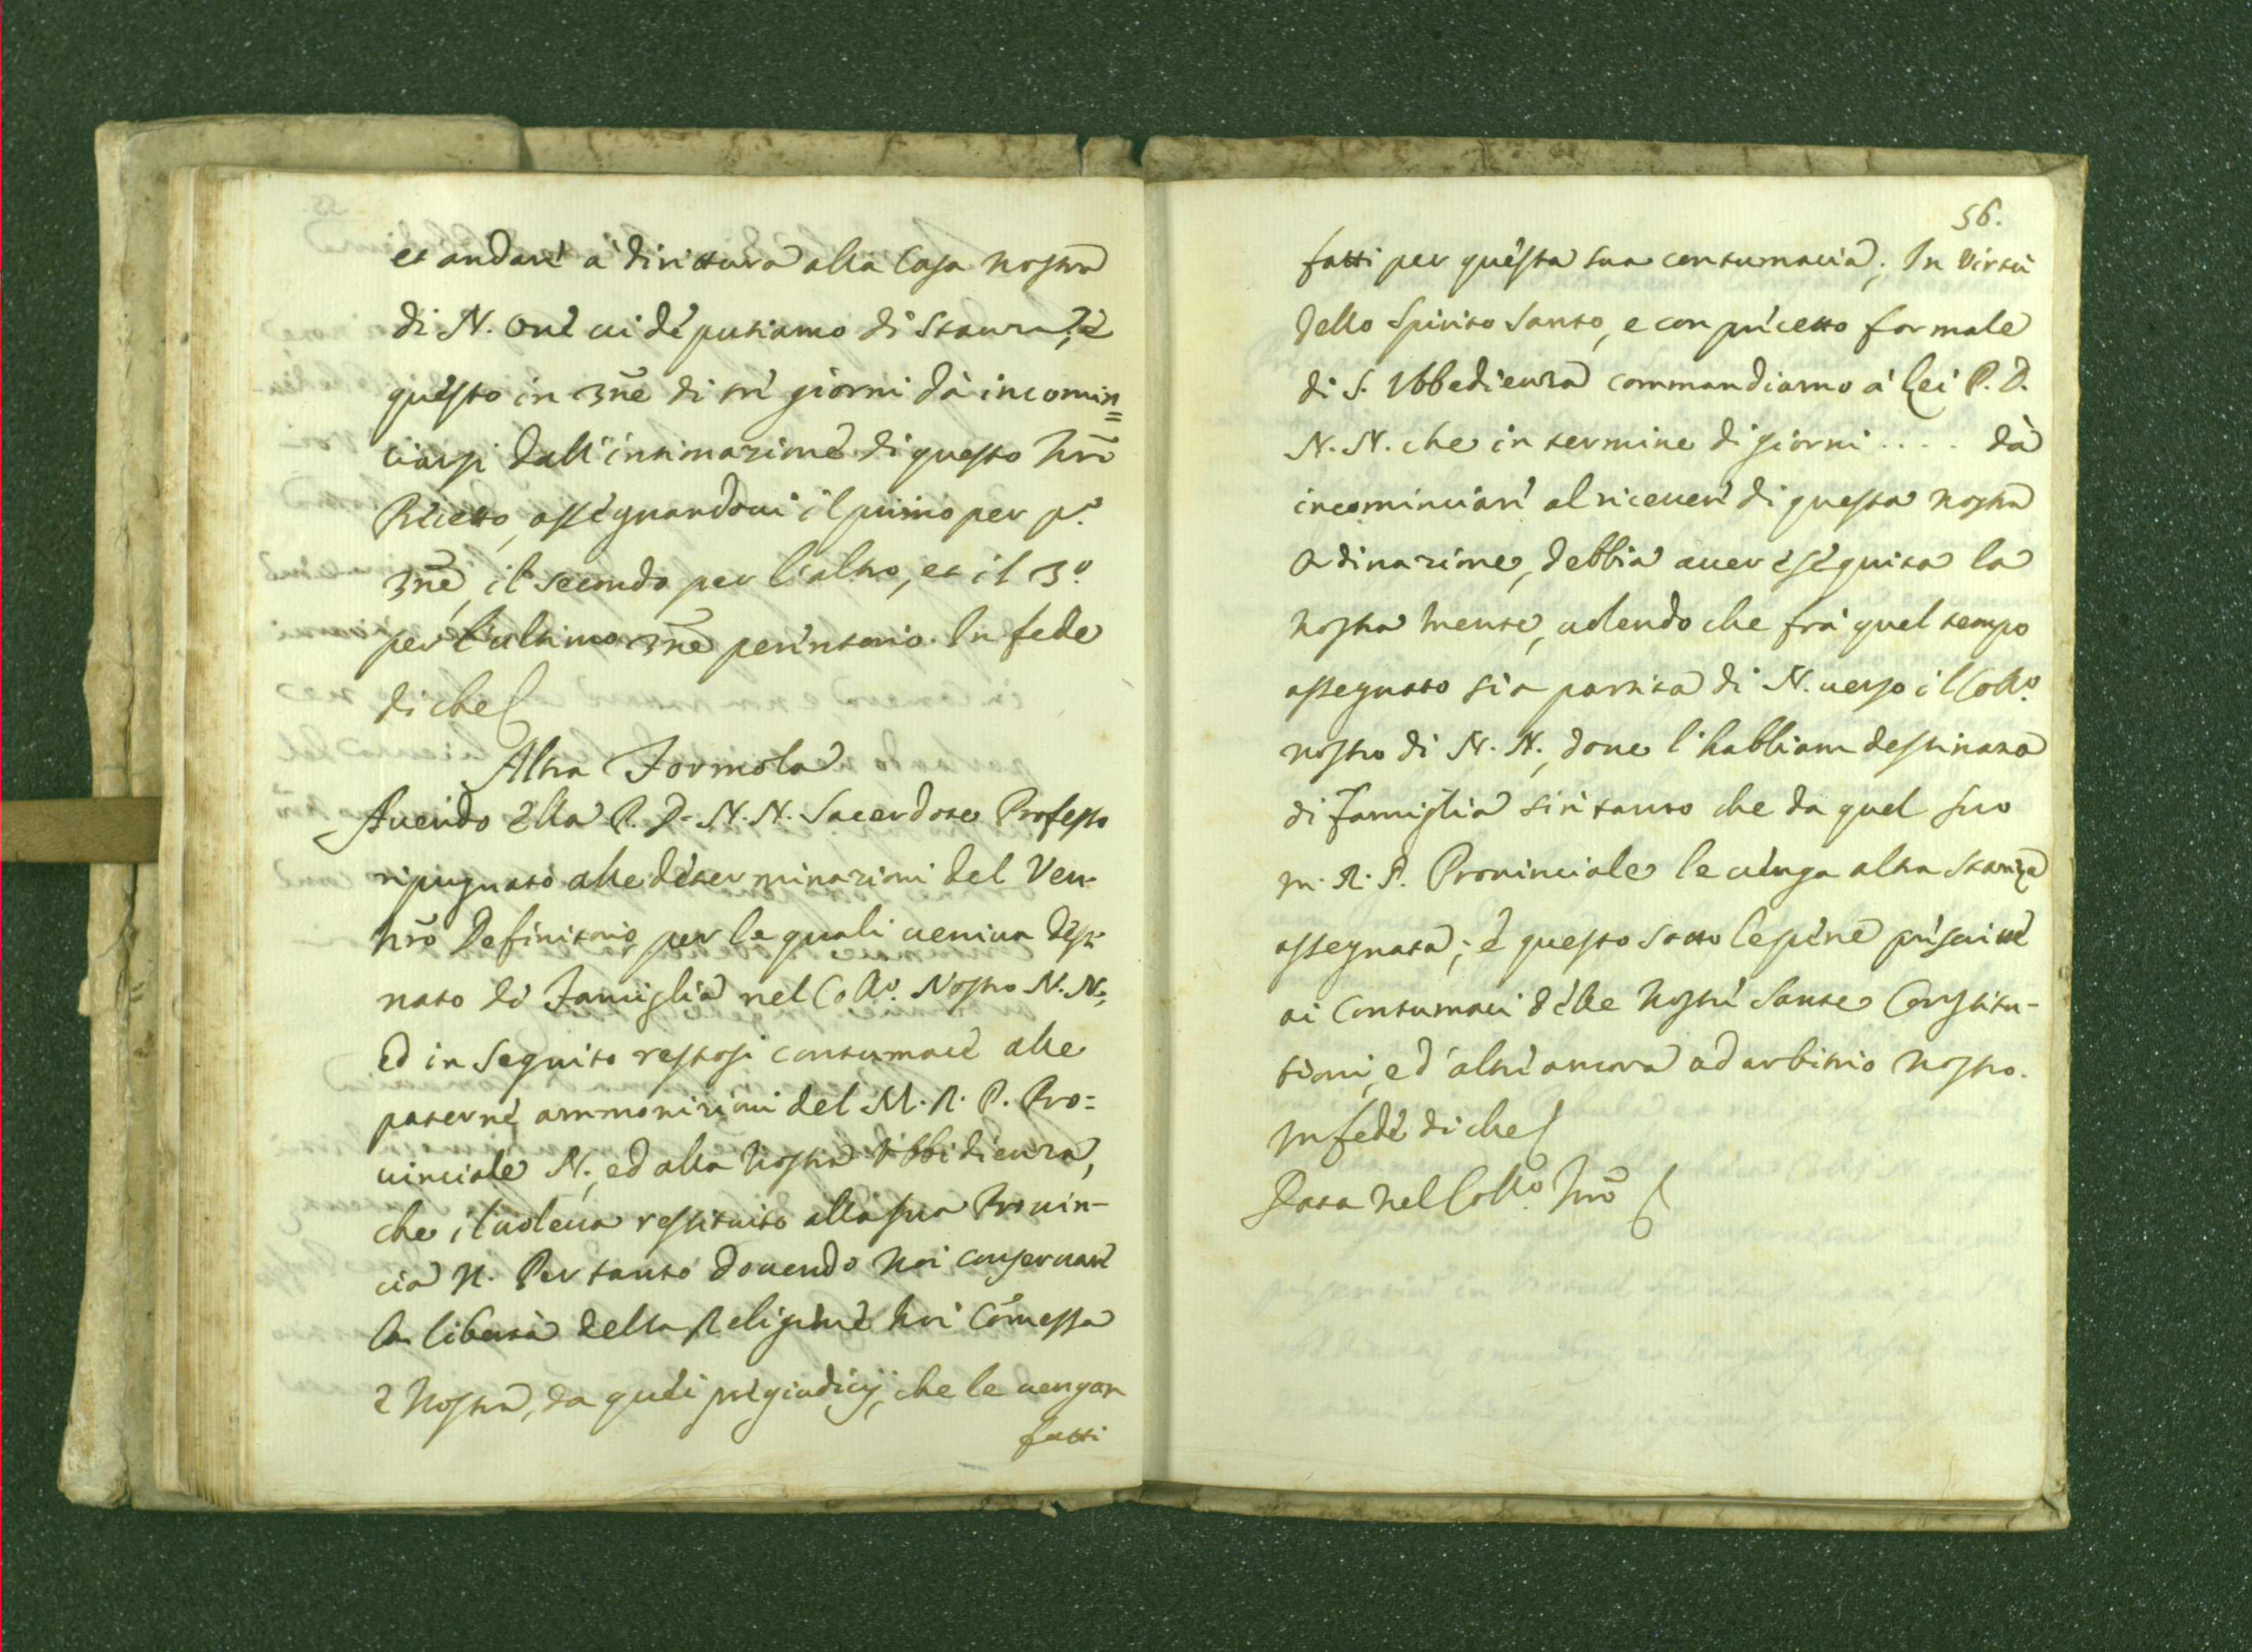 et andare à dirittura alla Casa nostra
di N. ove vi deputiamo di stanza, e
questo in 3ne di tre giorni dà incomin=
ciarsi dall'intimazione di questo nrõ
Precetto, assegnandovi il primo per p.º
3ne, il secondo per l'altro, et il 3.º
per l'ultimo 3ne perentorio. In fede
di che
Altra Formola
Avendo Ella P. D. N. N. Sacerdote Professo
ripugnato alle determinazioni del Ven.
nrõ Definitorio, per le quali veniva desti
nato di Famiglia nel Coll.º Nostro N. N.,
ed in seguito restosi contumace alle
paterne ammonizioni del M. R. P. Pro=
vinciale N., ed alla nostra Ubbidienza,
che il voleva restituito alla sua Provin-
cia N. Per tanto dovendo noi conservare
la libertà della Religione noi cõmessa
e nostra, da quei pregiudicij, che le vengon
fatti
56.
fatti per questa sua contumacia; In Virtù
dello Spirito Santo, e con precetto formale
di S. Ubbedienza commandiamo à Lei P. D.
N. N. che in termine di giorni . . . . dà
incominciare al ricevere di questa nostra
Ordinazione, debbia aver eseguita la
nostra mente, volendo che frà quel tempo
assegnato sia partita di N. verso il Coll.º
nostro di N. N., dove l'habbiam destinata
di Famiglia sin tanto che da quel suo
M. R. P. Provinciale le venga altra stanza
assegnata; e questo sotto le pene prescritte
ai Contumaci delle nostre Sante Constitu-
tioni, ed altre ancora ad arbitrio nostro.
In fede di che
Data nel Coll.º nrõ